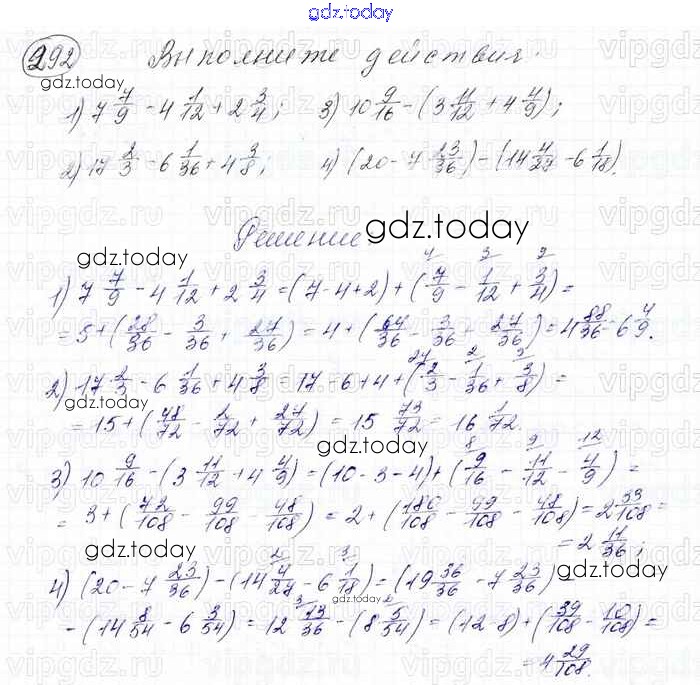 gdz.today
292 Выполните действия.
gdz.today
1) 7 7/9 - 4 1/12 + 2 3/4; 3) 10 9/16 - (3 11/12 + 4 4/9);
2) 17 2/3 - 6 1/36 + 4 3/8; 4) (20 - 7 23/36) - (14 4/27 - 6 1/18).
Решение gdz.today
gdz.today
4 3 2
1) 7 7/9 - 4 1/12 + 2 3/4 = (7-4+2) + (7/9 - 1/12 + 3/4) =
= 5 + (28/36 - 3/36 + 27/36) = 4 + (64/36 - 3/36 + 27/36) = 4 88/36 = 6 4/9.
24 2
2) 17 2/3 - 6 1/36 + 4 3/8 = 17 - 6 + 4 + (2/3 - 1/36 + 3/8) =
gdz.today
= 15 + (48/72 - 2/72 + 27/72) = 15 73/72 = 16 1/72.
gdz.today
8 9 12
3) 10 9/16 - (3 11/12 + 4 4/9) = (10 - 3 - 4) + (9/16 - 11/12 - 4/9) =
= 3 + (72/108 - 99/108 - 48/108) = 2 + (180/108 - 99/108 - 48/108) = 2 33/108 =
= 2 11/36;
gdz.today
2 3
4) (20 - 7 23/36) - (14 4/27 - 6 1/18) = (19 36/36 - 7 23/36) -
gdz.today
- (14 8/54 - 6 3/54) = 12 13/36 - (8 5/54) = (12-8) + (39/108 - 10/108) =
= 4 29/108.
vipgdz.ru